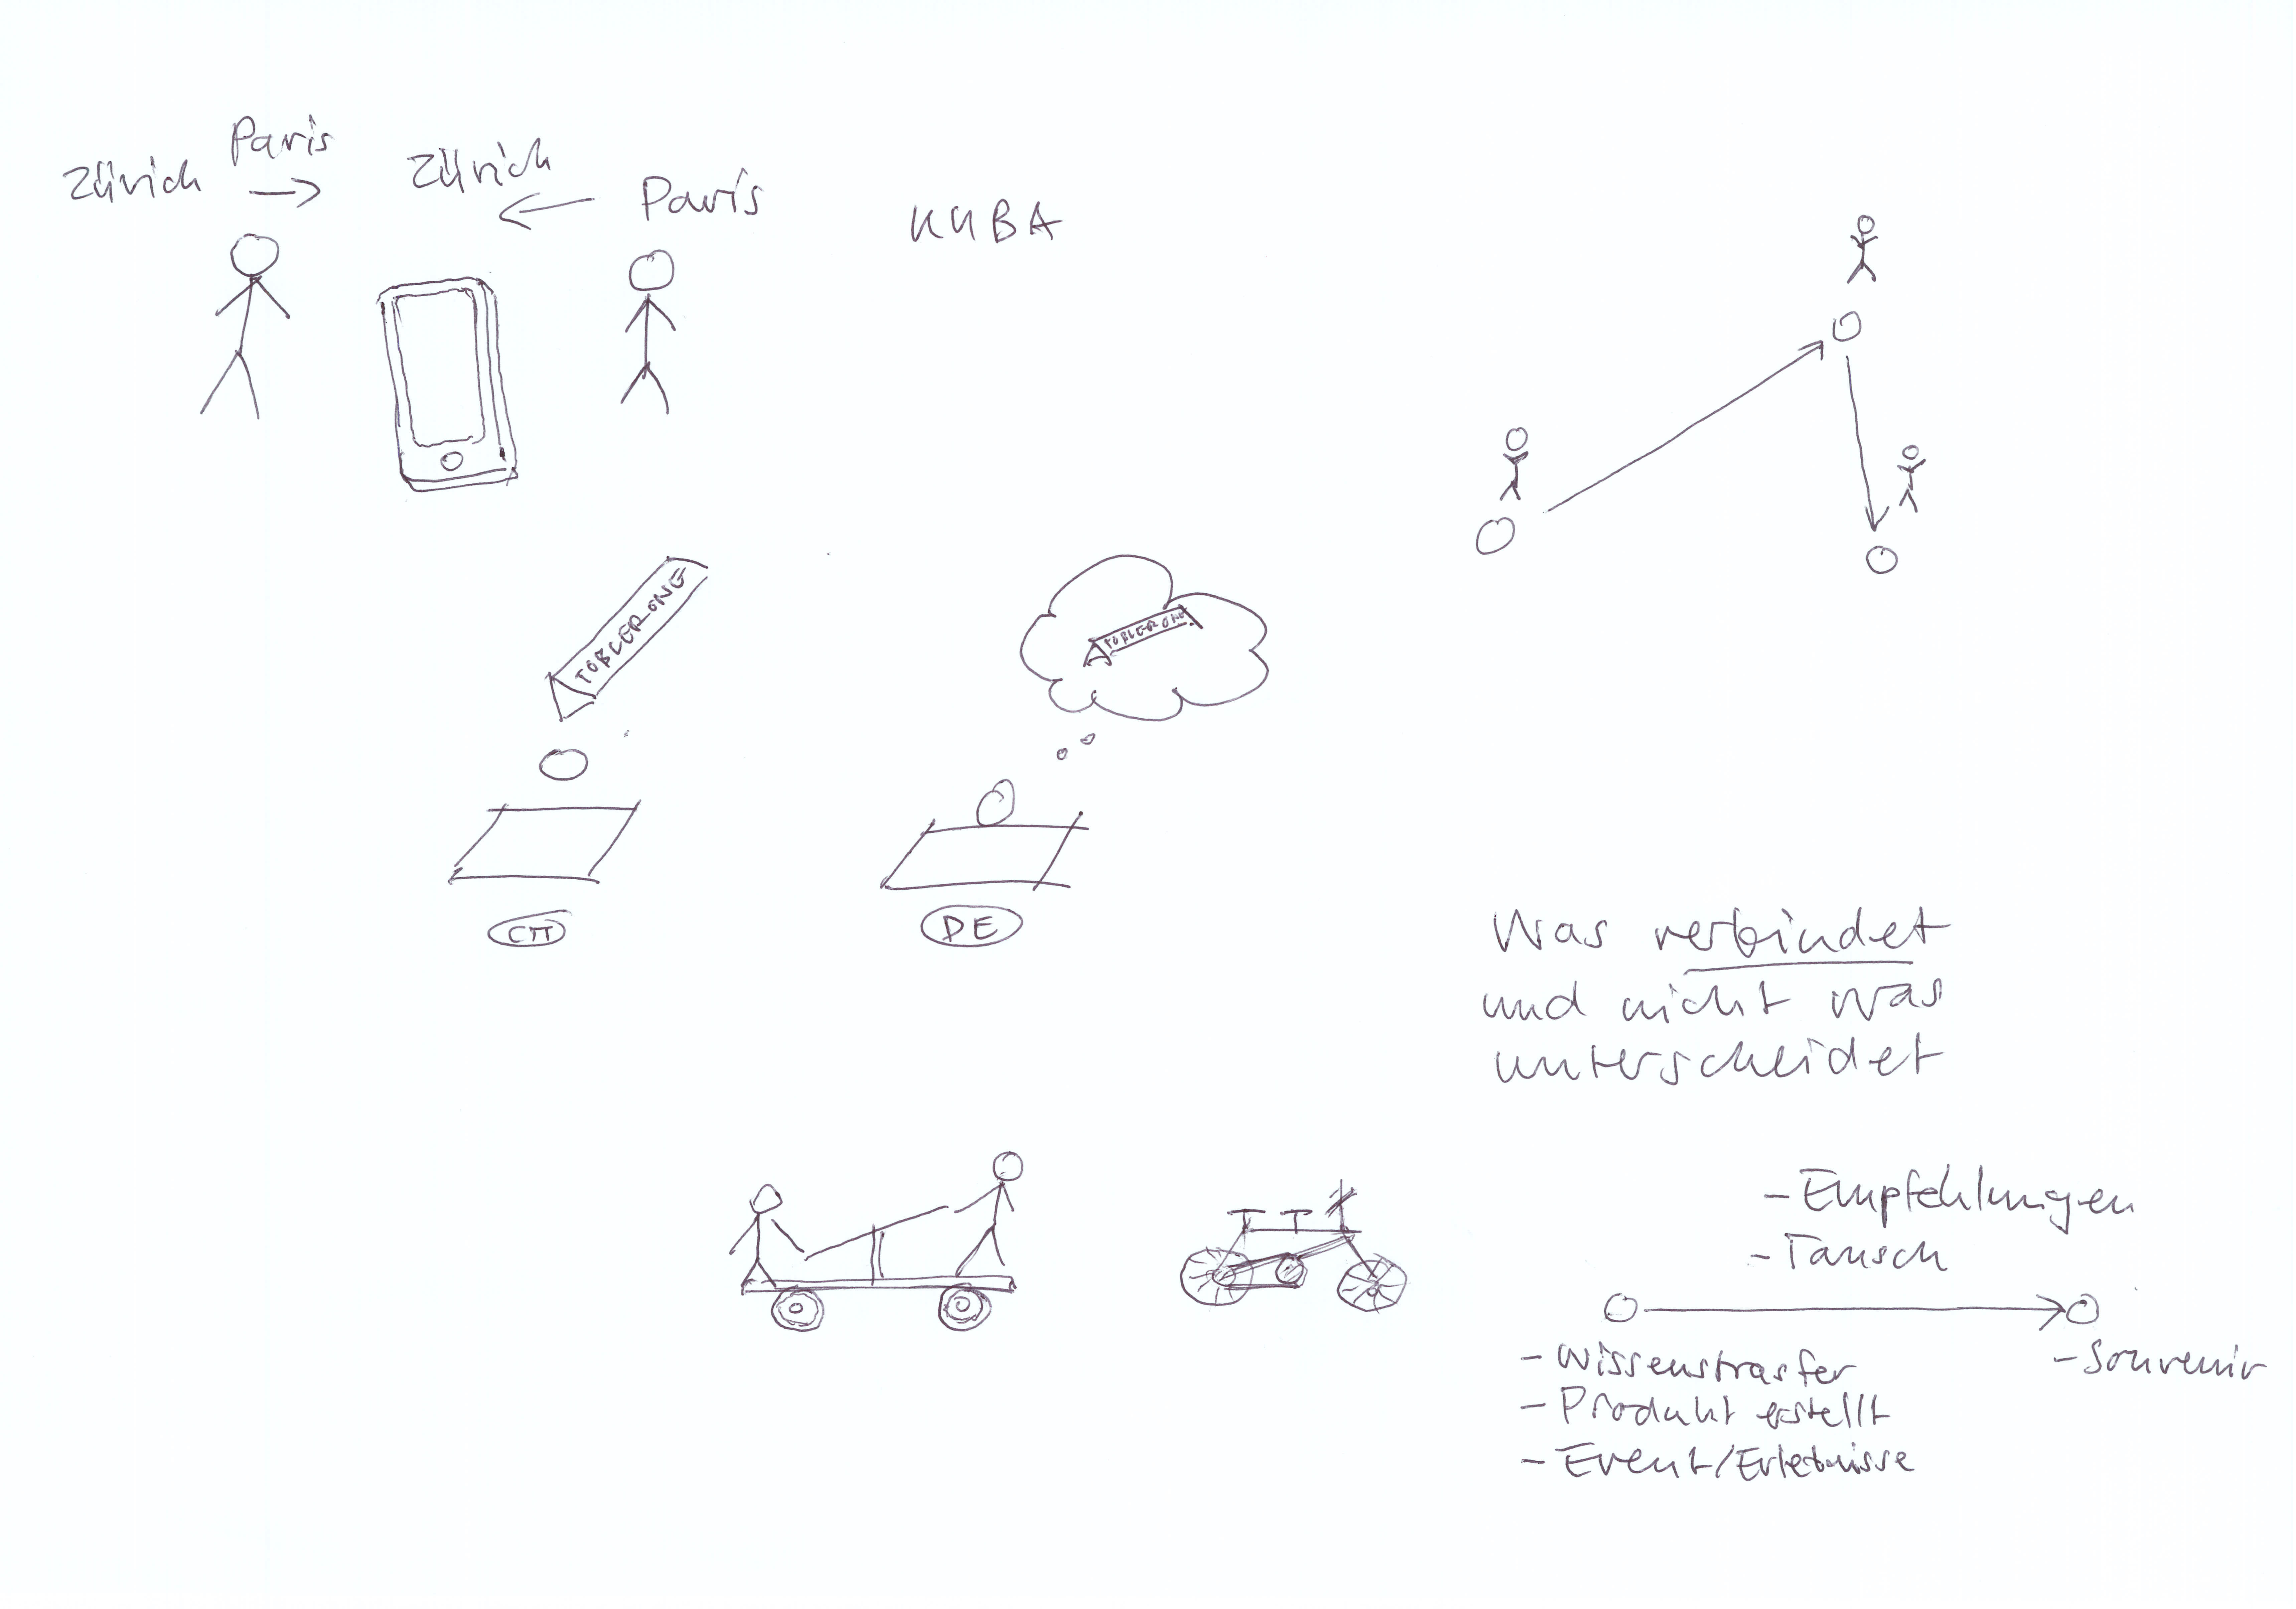 Paris
Zürich
Zürich
Paris
KUBA
TOBLERONE
TOBLERONE
CH
DE
Was verbindet
und nicht was
unterscheidet
- Empfehlungen
- Tausch
- Wissenstrasfer
- Produkt erstellt
- Event/Erlebnisse
- Souvenir